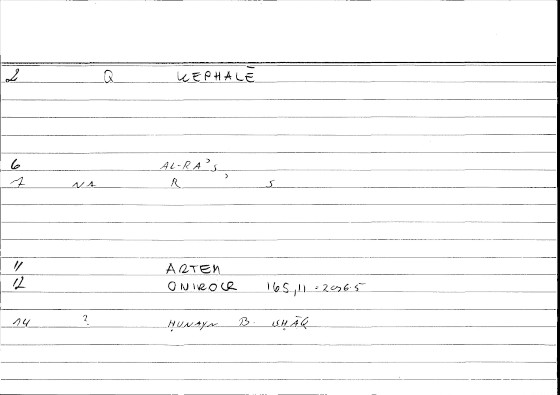 2 Q KEPHALĒ
6 AL-RAʾS
7 NA R ʾ S
11 ARTEM
12 ONIROCR 165,11
14 ? ḤUNAYN B. ISḤĀQ